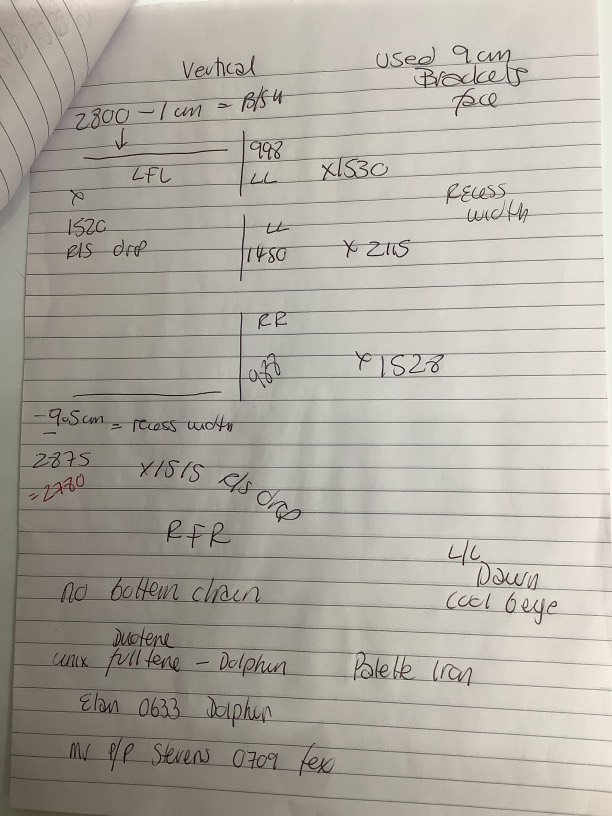 Vertical
used 9cm
Brackets
face
2800 - 1cm = B/S4
998
LFL
LL x1530
x
Recess
width
1520
R/S drop
LL
1450 x 2115
RR
988 x1528
-9.5cm = recess width
2875
=2780
x1515 R/S drop
RFR
L/C
Down
cool beige
no bottem chain
Duotene
unix fulltene - Dolphin
Palette Iran
Elan 0633 Dolphin
Mr P/P Stevens 0709 fex